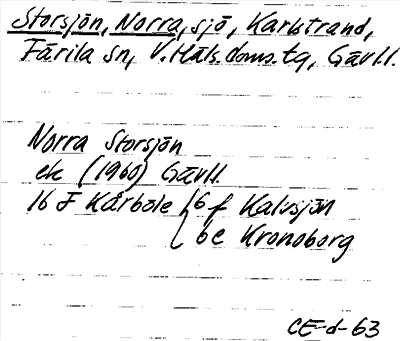 Storsjön, Norra, sjö, Karlstrand,
Färila sn, V. Häls. doms. tg, Gävl.l.
Norra Storsjön
ek (1960) Gävl.l.
16 F Kårböle 6 f Kalvsjön
6e Kronoborg
CE-d-63